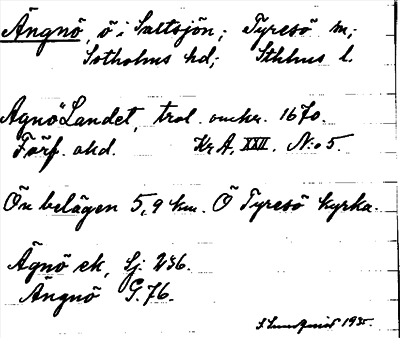 Ängnö, ö i Saltsjön; Tyresö sn;
Sotholms hd; Sthlms l.
AgnöLandet, trol. omkr. 1670.
Förf. okd. KrA, XXII. N:o 5.
Ön belägen 5,9 km. Ö Tyresö kyrka.
Ägnö ek, Lj. 236.
Ängnö G. 76.
1935.